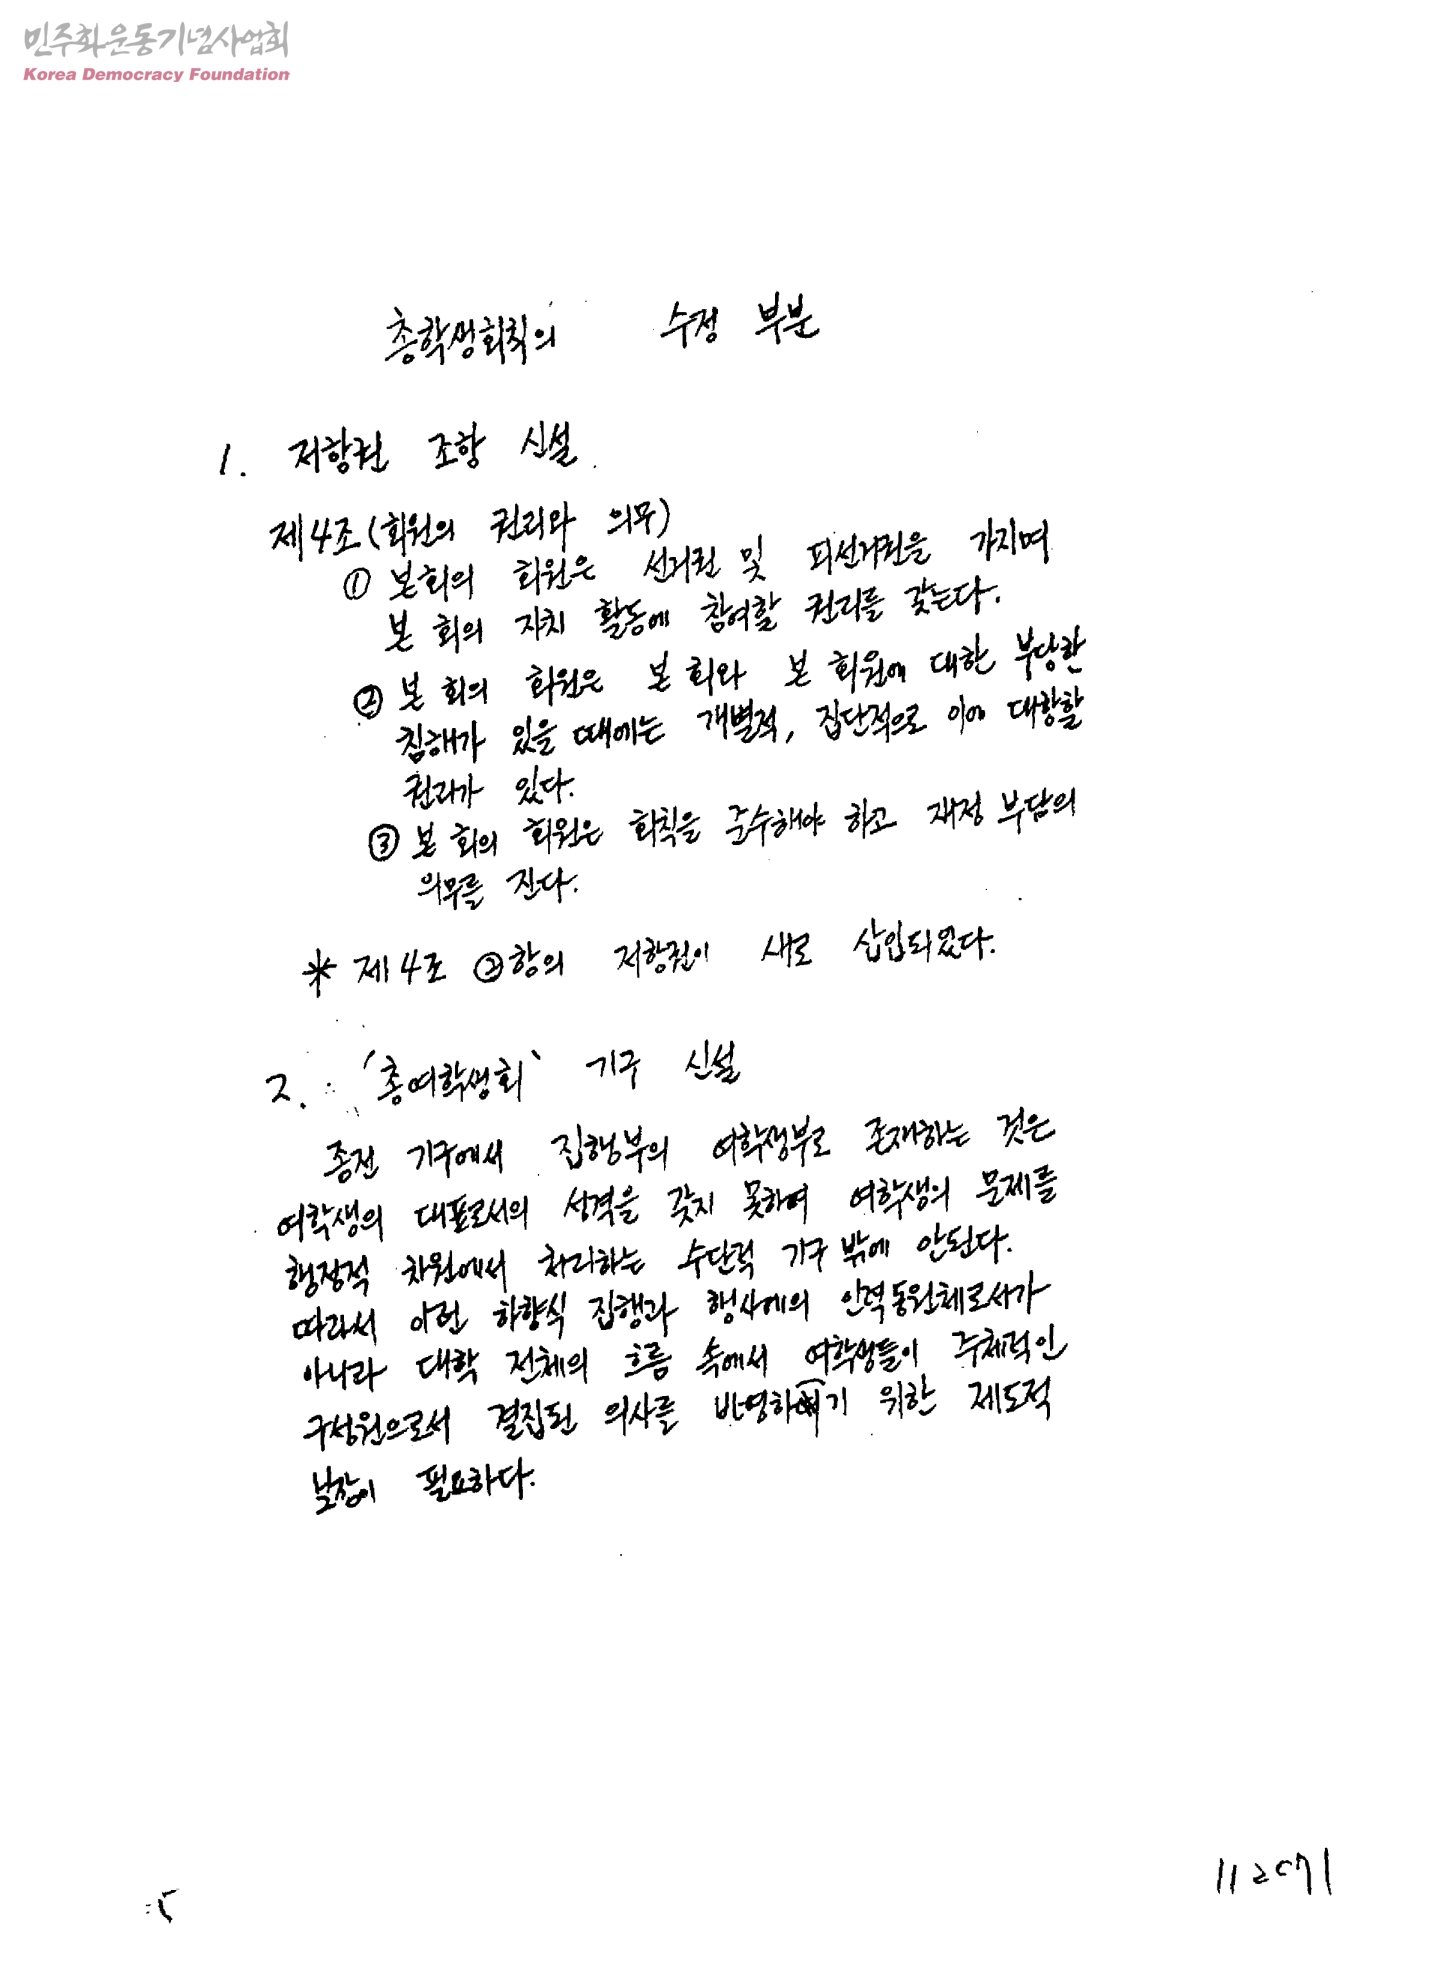 민주화운동기념사업회
Korea Democracy Foundation
총학생회칙의 수정 부분
1. 저항권 조항 신설
제4조(회원의 권리와 의무)
① 본회의 회원은 선거권 및 피선거권을 가지며
본 회의 자치 활동에 참여할 권리를 갖는다.
② 본 회의 회원은 본 회와 본 회원에 대한 부당한
침해가 있을 때에는 개별적, 집단적으로 이에 대항할
권리가 있다.
③ 본 회의 회원은 회칙을 준수해야 하고 재정 부담의
의무를 진다.
* 제4조 ②항의 저항권이 새로 삽입되었다.
2. '총여학생회' 기구 신설
종전 기구에서 집행부의 여학생부로 존재하는 것은
여학생의 대표로서의 성격을 갖지 못하여 여학생의 문제를
행정적 차원에서 처리하는 수단적 기구 밖에 안된다.
따라서 이런 하향식 집행과 행사에의 인력동원체로서가
아니라 대학 전체의 흐름 속에서 여학생들이 주체적인
구성원으로서 결집된 의사를 반영하기 위한 제도적
보장이 필요하다.
112071
5